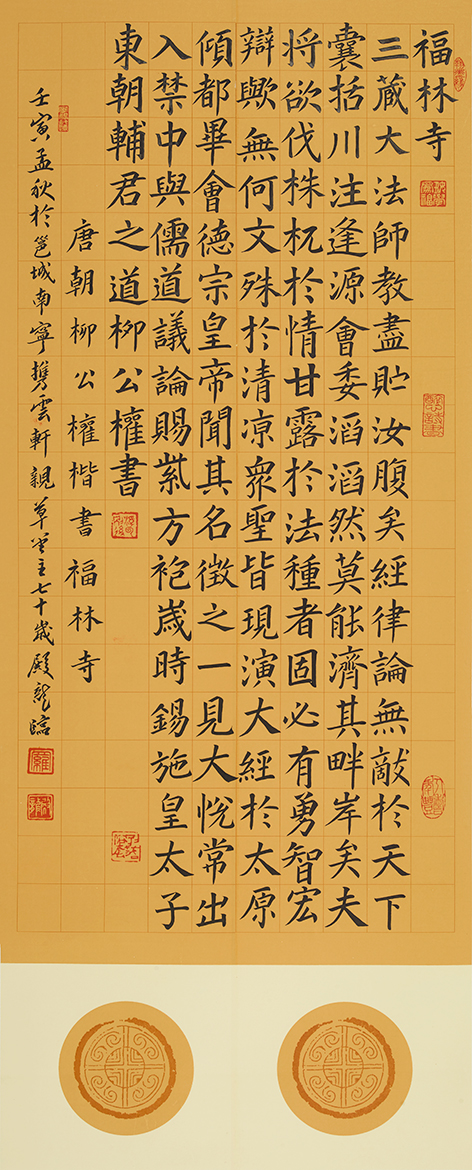 福林寺
三藏大法師教盡貯汝腹矣經律論無敵於天下
囊括川注逢源會委滔滔然莫能濟其畔岸矣夫
将欲伐株杌於情甘露於法種者固必有勇智宏
辯歟無何文殊於清凉眾聖皆現演大經於太原
傾都畢會德宗皇帝聞其名徵之一見大悅常出
入禁中與儒道議論賜紫方袍歲時錫施皇太子
東朝輔君之道柳公權書
唐朝柳公權楷書福林寺
壬寅孟秋於邕城南寧攜雲軒親草堂主七十歲殿龍臨